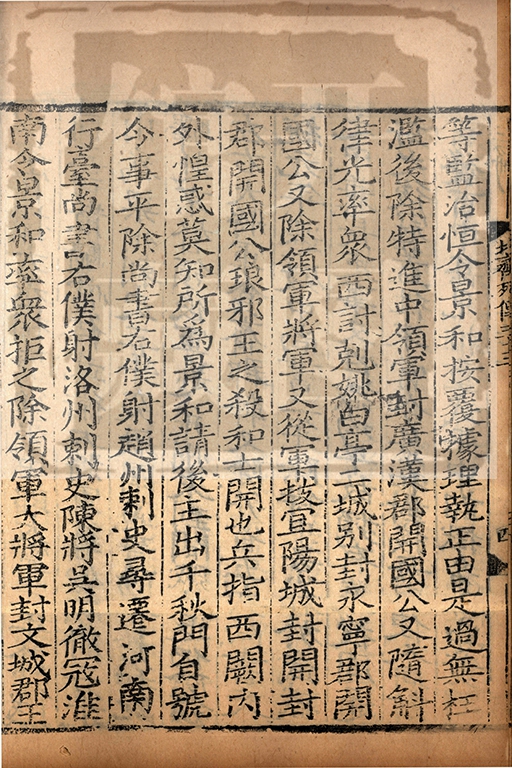 等監治恒令景和按覆據理執正由是過無枉
濫後除特進中領軍封廣漢郡開國公又隨斛
律光率衆西討剋姚白亭二城别封永寧郡開
國公又除領軍將軍又從軍拔宜陽城封開封
郡開國公琅邪王之殺和士開也兵指西闕内
外惶惑莫知所為景和請後主出千秋門自號
令事平除尚書右僕射趙州刺史尋遷河南
行臺尚書右僕射洛州刺史陳將吳明徹寇淮
南令景和率衆拒之除領軍大將軍封文城郡王